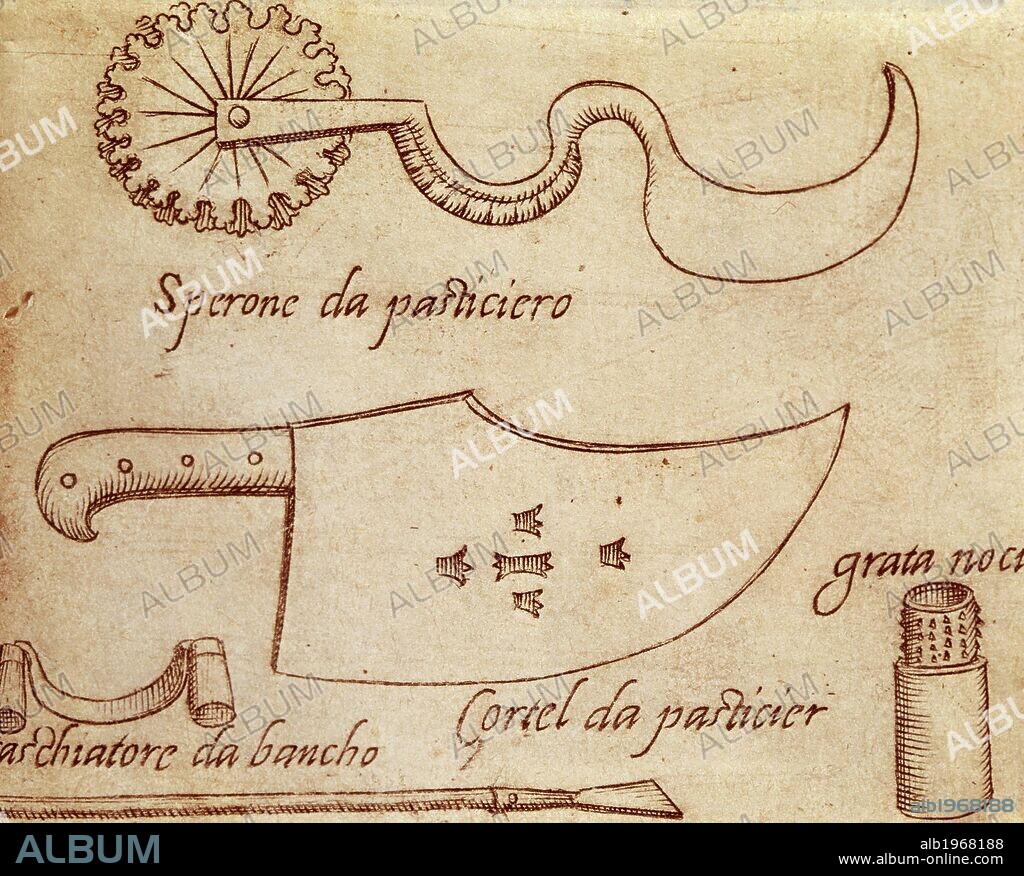 Sperone da pasticiero
grata noci
Cortel da pasticier
aschiatore da bancho
ALBUM
alb1968188
alb1968188
www.album-online.com